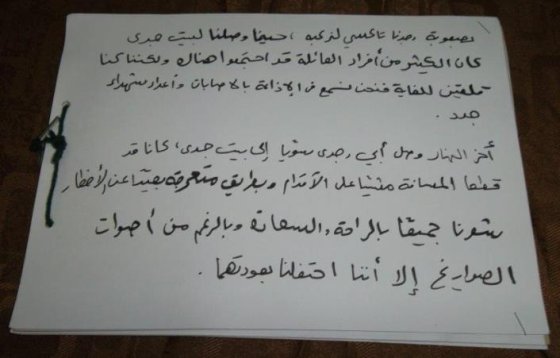 بصعوبة وجدنا تاكسي لنركبه ، حينما وصلنا لبيت جدي
كان الكثير من أفراد العائلة قد اجتمعوا هناك ولكننا كنا
قلقين للغاية فنحن نسمع في الإذاعة بالإصابات وأعداد شهداء
جدد .
آخر النهار وصل أبي وجدي سويا إلى بيت جدي، كانا قد
قطعا المسافة مشيا على الأقدام وبطريق متعرجة بعيدا عن الأخطار
شعرنا جميعًا بالراحة والسعادة وبالرغم من أصوات
الصواريخ إلا أننا احتفلنا بعودتهما .